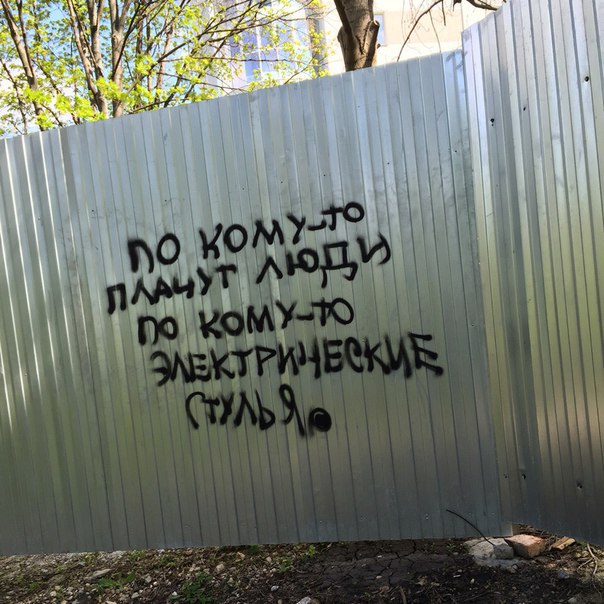 ПО КОМУ-ТО
ПЛАЧУТ ЛЮДИ
ПО КОМУ-ТО
ЭЛЕКТРИЧЕСКИЕ
СТУЛЬЯ.